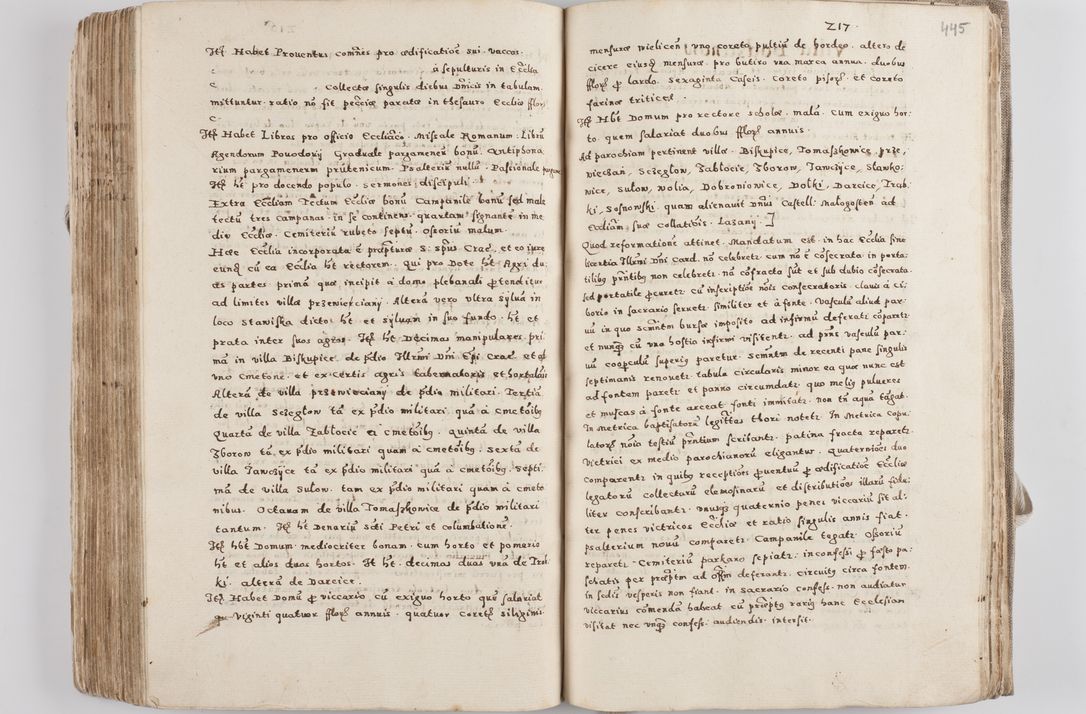 Itē Habet Prouentus com̄nes pro ædificatioē sui. vaccas.
à sepulturis in Ecc̄lia
collecta singulis diebus Dn̄icis in tabulam.
mittuntur. ratio nō fit pec̄iæ paratæ in thesauro Eccl̄iæ
Itē Habet Libros pro officio Eccl̄iæ. Missale Romanum. Librū
Agendorum Powodowij Graduale pargameneū bonū. Antiphona
rium pargamenem prutenicum. Psalteriū nullū. Passionale
Itē ht̄ pro docendo populo. Sermones discipuli.
Extra Eccl̄iam Tectum Eccl̄iæ bonū Campanile bonū sed male
tectū tres campanas in se continens. quartam signantē in me
dio Eccl̄iæ. Cemiteriū rubeto septū. Ossoriū malum.
Hæc Eccl̄ia incorporata ē præpt̄uræ S: sp̄us Crac̄. et eo iure
cū ea Eccl̄ia ht̄ rectorem. qui pro Dote ht̄ Agri du
as partes primā quæ incipit à domo plebanali protenditur
ad limites villæ przewierciany. Alterā vero vltra syluā in
loco Stawiska dicto. ht̄ et syluam in suo fundo. ht̄ et
prata inter suos agros. Itē ht̄ Decimas manipulares pri
mā in villa Biskupice. de p̄dio Illr̄mi Dn̄i Ep̄i Crac̄. et
vno cmetone. et ex certis agris tabernatorū et hortulanis
Alterā de villa przewierciany de p̄dio militari. Tertiā
de villa Sczeglow tā ex p̄dio militari quā à cmetoībus
Quartā de villa Zablocie à cmetoībus. quintā de villa
Zborow tā ex p̄dio militari quam à cmetoībus. Sextā de
villa Janczyce tā ex p̄dio militari quā à cmetoībus. Septi
mā de villa Sulow. tam ex p̄dio militari quam à cmeto
nibus. Octauam de villa Tomaszkowice de p̄dio militari
tantum. Itē ht̄ Denariū S̄cti Petri et columbatione.
Itē hbt̄ Domum mediocriter bonam. cum horto et pomerio
ht̄ et alios duos hortos. It ht̄ decimas duas vnā de Trab
ki. alterā de Darcice.
Itē Habet Domū pro viccario cū exiguo horto quē salariat
viginti quatuor annuis. quatuor coretis siliginis
217 445
mensuræ wielicen̄ vno coreto pultiū de hordeo. altero de
cicere eiusdē mensuræ. pro butiro vna marca annua. duobus
pro lardo. Sexaginta caseis. Coreto pisorum et coreto
farinæ triticeæ.
Itē Hbt̄ Domum pro rectore scholæ. malā. cum exiguo hor
to. quem salariat duobus annuis.
Ad parochiam pertinent villæ. Biskupice, Tomaszkowice, prze,
wieciań, Sczeglow, Zablocie, Zborow, Janczyce, Slawko,
wice, Sulow, Wolia, Dobroniowice, Dolki, Darcice, Trab,
ki, Sosnowski, quam alienauit Dn̄us Castell: Malogosteń ad
Ecc̄liam suæ collationis. Lazany:
Quod reformationē attinet. Mandatum est. in hac Eccl̄ia sine
licentia Illr̄mi Dn̄i Card. nō celebretur cum nō ē cōsecrata. in porta
tilibus non celebretur. nō cōfracta sūt et sub dubio cōsecrata.
sed portatile procuretur cū inscriptiōe nōis consecratoris. clauis à ci,
borio in sacrario seruetur similiter et à fonte. Vasculū aliud par,
uū in quo Scrmn̄tum bursæ imposito ad infirmū deferatur comparetur
et nunquam cū vna hostia infirmi visitentur. ad vasculū par,
uū coopculū superius paretur. Scrmn̄tm de recenti pane singulis
septimanis renouetur. tabula circularis minor ea quæ nunc est
ad fontem paretur et panno circumdatur. quo melius pulueres
et muscas à fonte arceat. fonti immitatur. non tn̄ aquā tāgat.
In metrica baptisatorū legitimus thori notetur. In metrica copu,
latorum nōia testiū scribantur. patina fracta reparetur
victrici ex medio parochianorū eligantur. Quaternioēs duo
comparentur in quibus receptioēs prouentuū pro ædificatioē Eccl̄iæ
legatorū collectarū elemosinarū et distributioēs illarū fide,
liter conscribantur. vnusque quaternio penes viccariū sit al,
ter penes victricos Eccl̄iæ et ratio singulis annis fiat.
psalterium nouū comparetur. Campanile tegatur. Ossoriū
reparetur. Cemiteriū parkano sepiatur. inconfessi pro festo pa,
schatis per ad Off̄m deferantur. circuitus circa fontem
in sedis vesperis non fiant. in sacrario confess. non audiatur.
viccarius comendā habeat cū rarius hanc Ecclesiam
visitat nec vnquam confess: audiendis intersit.